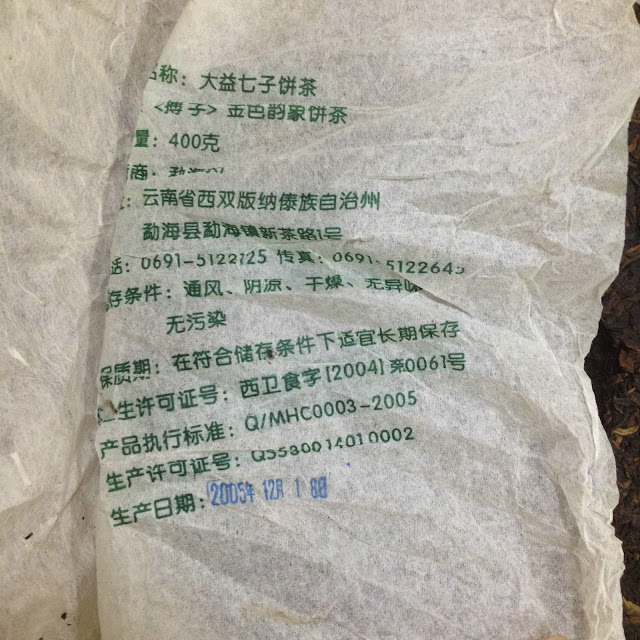 名称：大益七子饼茶
<傅子> 金色韵象饼茶
量：400克
商：勐海
：云南省西双版纳傣族自治州
勐海县勐海镇新茶路1号
话：0691-5122725 传真：0691-5122645
存条件：通风、阴凉、干燥、无异味
无污染
保质期：在符合储存条件下适宜长期保存
卫生许可证号：西卫食字[2004]第0061号
产品执行标准：Q/MHC0003-2005
生产许可证号：QS530014010002
生产日期：2005年12月18日